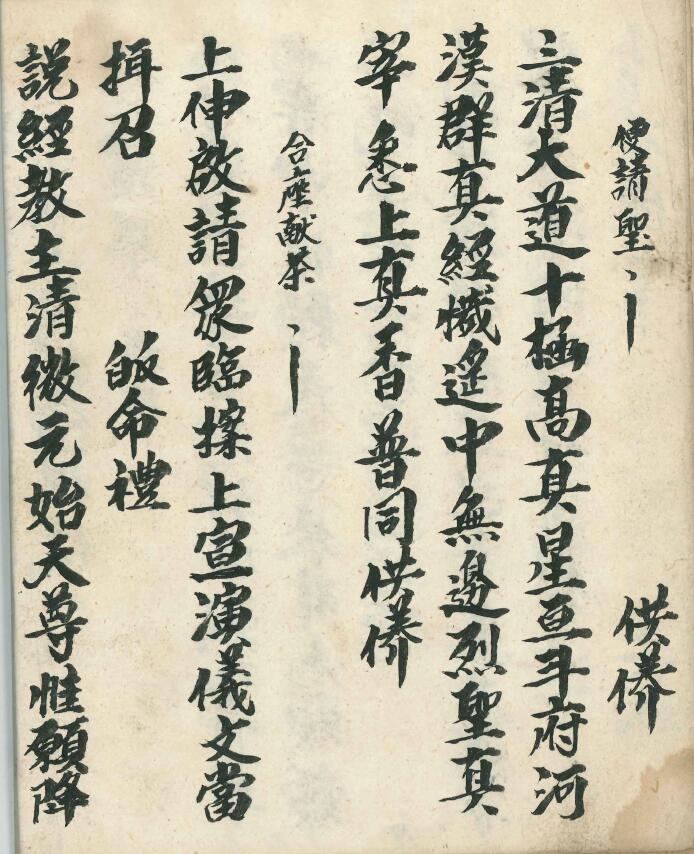 便請聖 供養
三清大道十極高真星豆斗府河
漢群真經懺筵中無邊烈聖真
宰悉上真香普同供養
合座献茶
上伸啟請眾臨揲上宣演儀文當
揖召 皈命禮
說經教主清微元始天尊惟願降